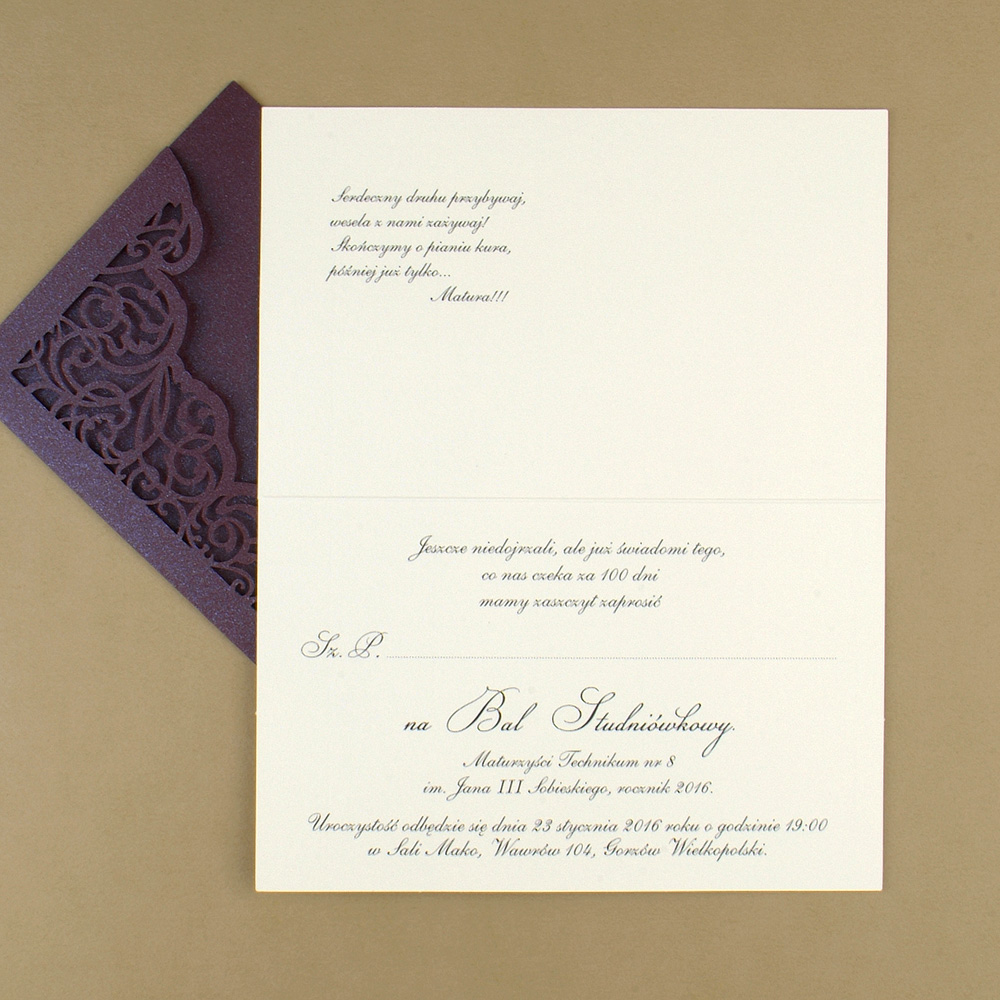 Serdeczny druhu przybywaj,
wesela z nami zażywaj!
Skończymy o pianiu kura,
później już tylko...
Matura!!!
Jeszcze niedojrzali, ale już świadomi tego,
co nas czeka za 100 dni
mamy zaszczyt zaprosić
Sz. P. ........................................................................
na Bal Studniówkowy.
Maturzyści Technikum nr 8
im. Jana III Sobieskiego, rocznik 2016.
Uroczystość odbędzie się dnia 23 stycznia 2016 roku o godzinie 19:00
w Sali Mako, Wawrów 104, Gorzów Wielkopolski.